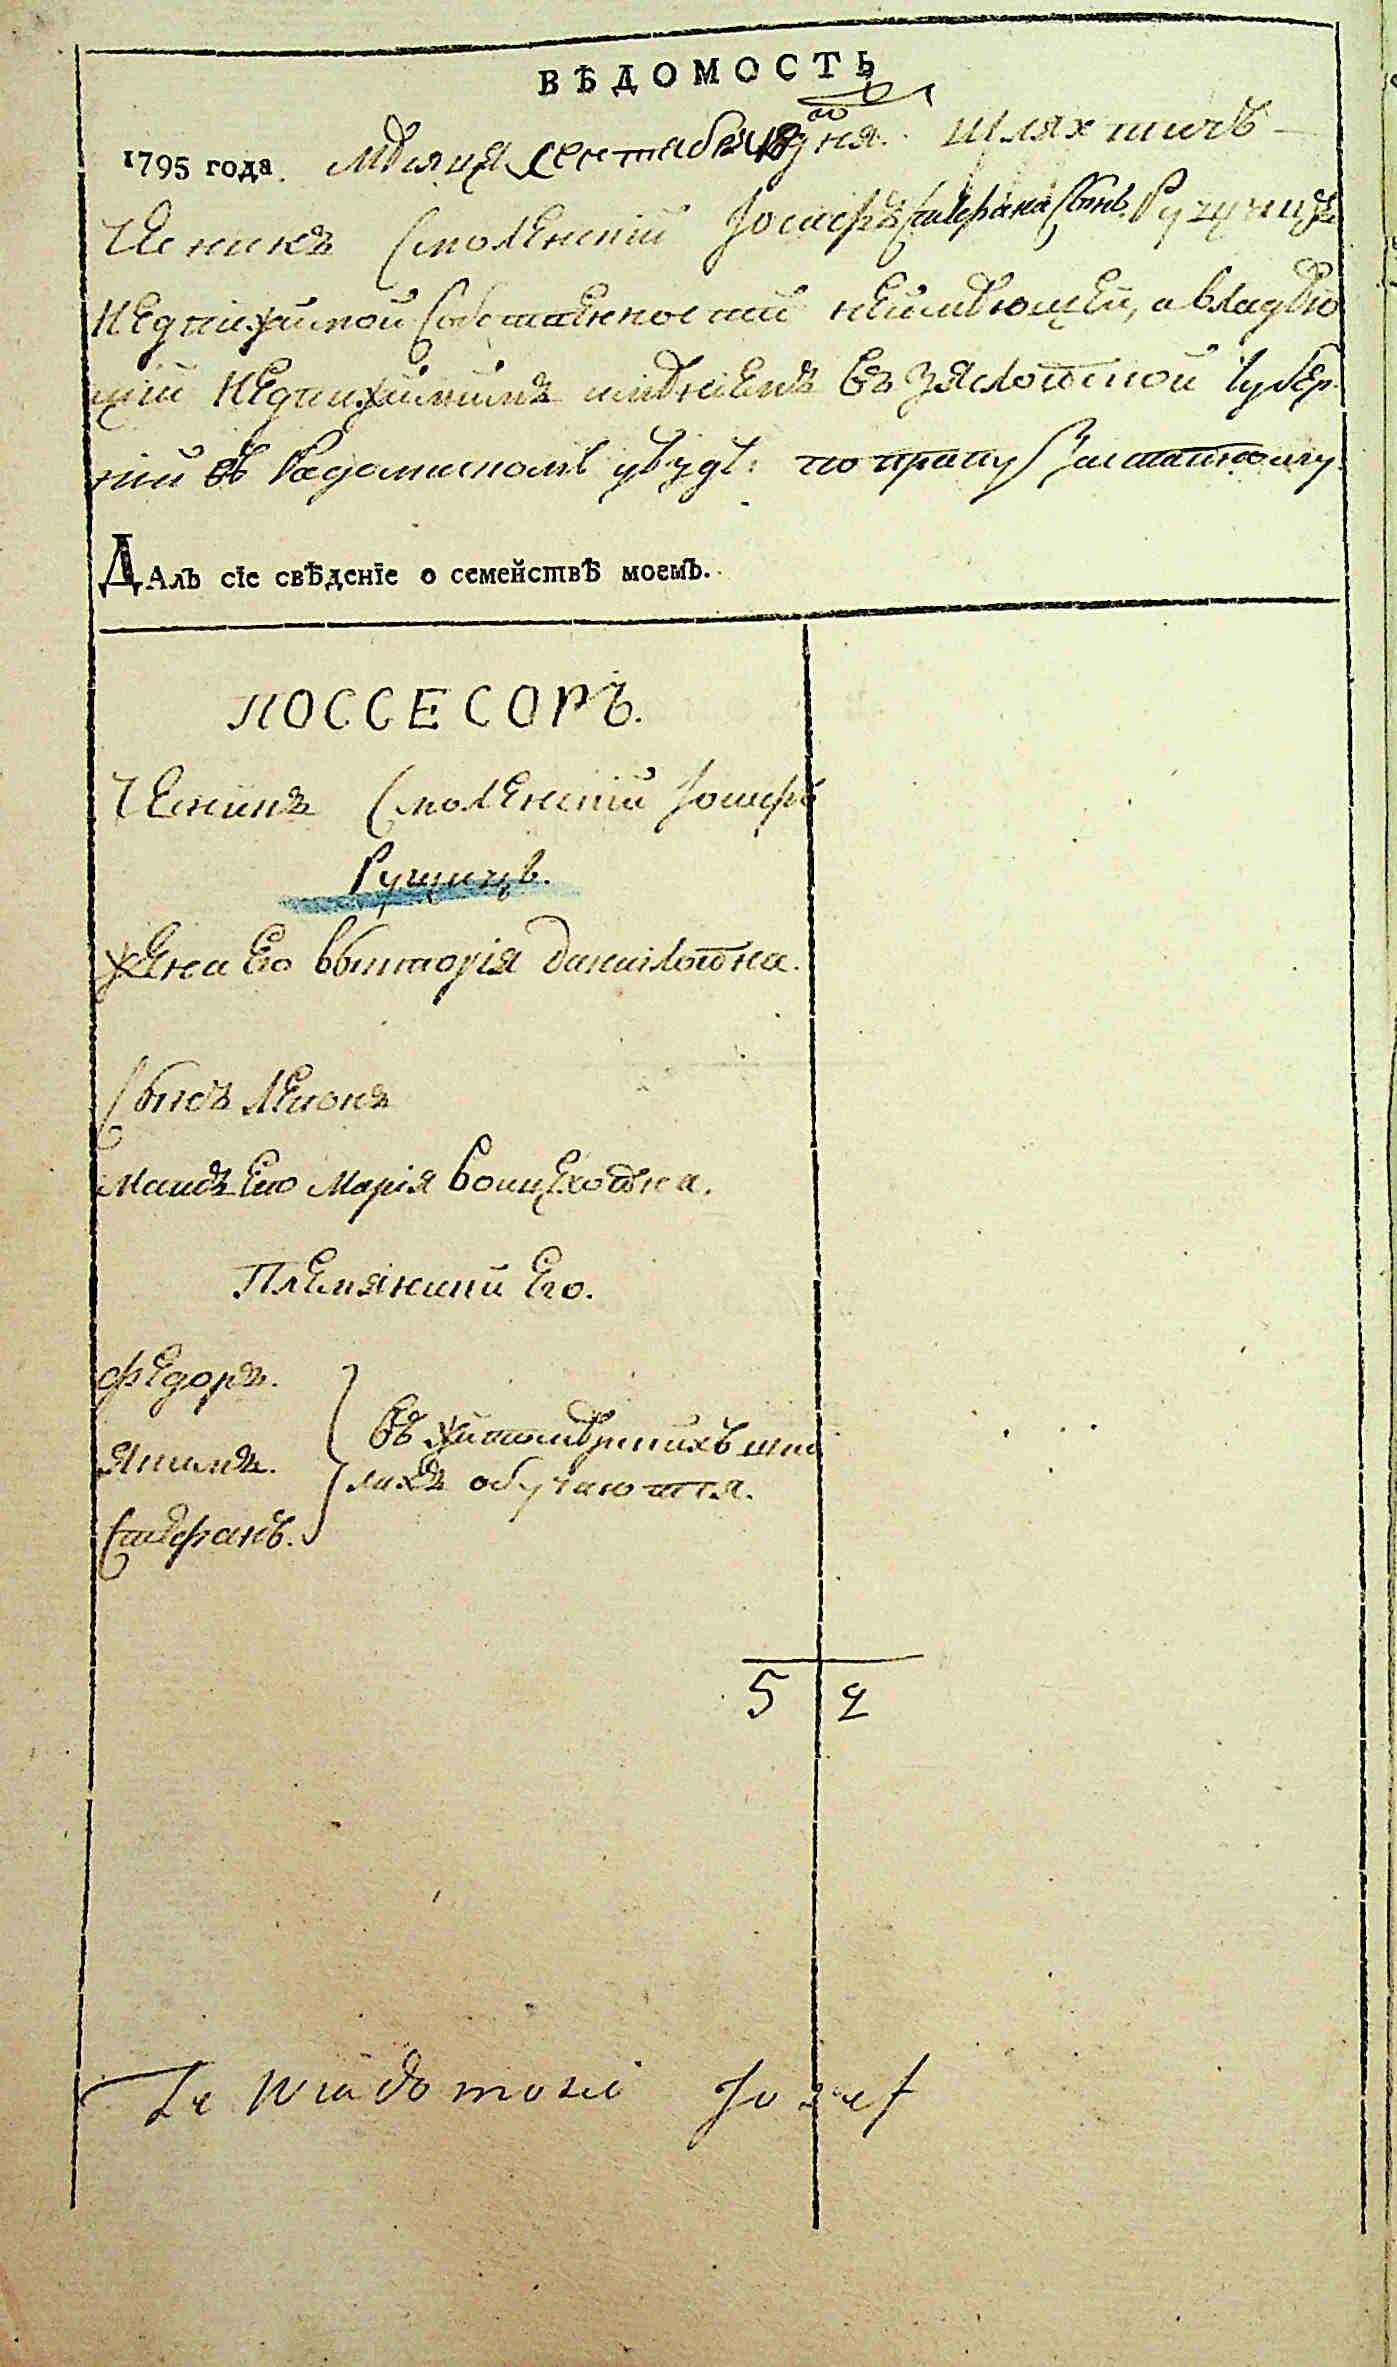 ВѢДОМОСТЬ
1795 года. мѣсяца Сентября дня. шляхтичъ
Чесникъ Смоленскій Іосифъ Стефана Сынъ
недвижимой Собственности неимѣющей, а владѣю
щій недвижимимъ имѣніемъ въ Изяславской Губер
ніи въ Радомыскомъ уѣздѣ: по праву Заставному.
ДАлъ сїе свѣденїе о семействѣ моемъ.
ПОССЕСОРЪ.
Чесникъ Смоленскій Іосифъ
Рущицъ.
жена Его Выкторія Даниловна.
Сынъ Леонъ
Мать Его Марія Войцеховна.
Племянники Его.
Федоръ.
Якимъ.
Стефанъ.
Въ житомѣрскихъ шко
лахъ обучаются.
5 2
Te Wiadomosci Jozef